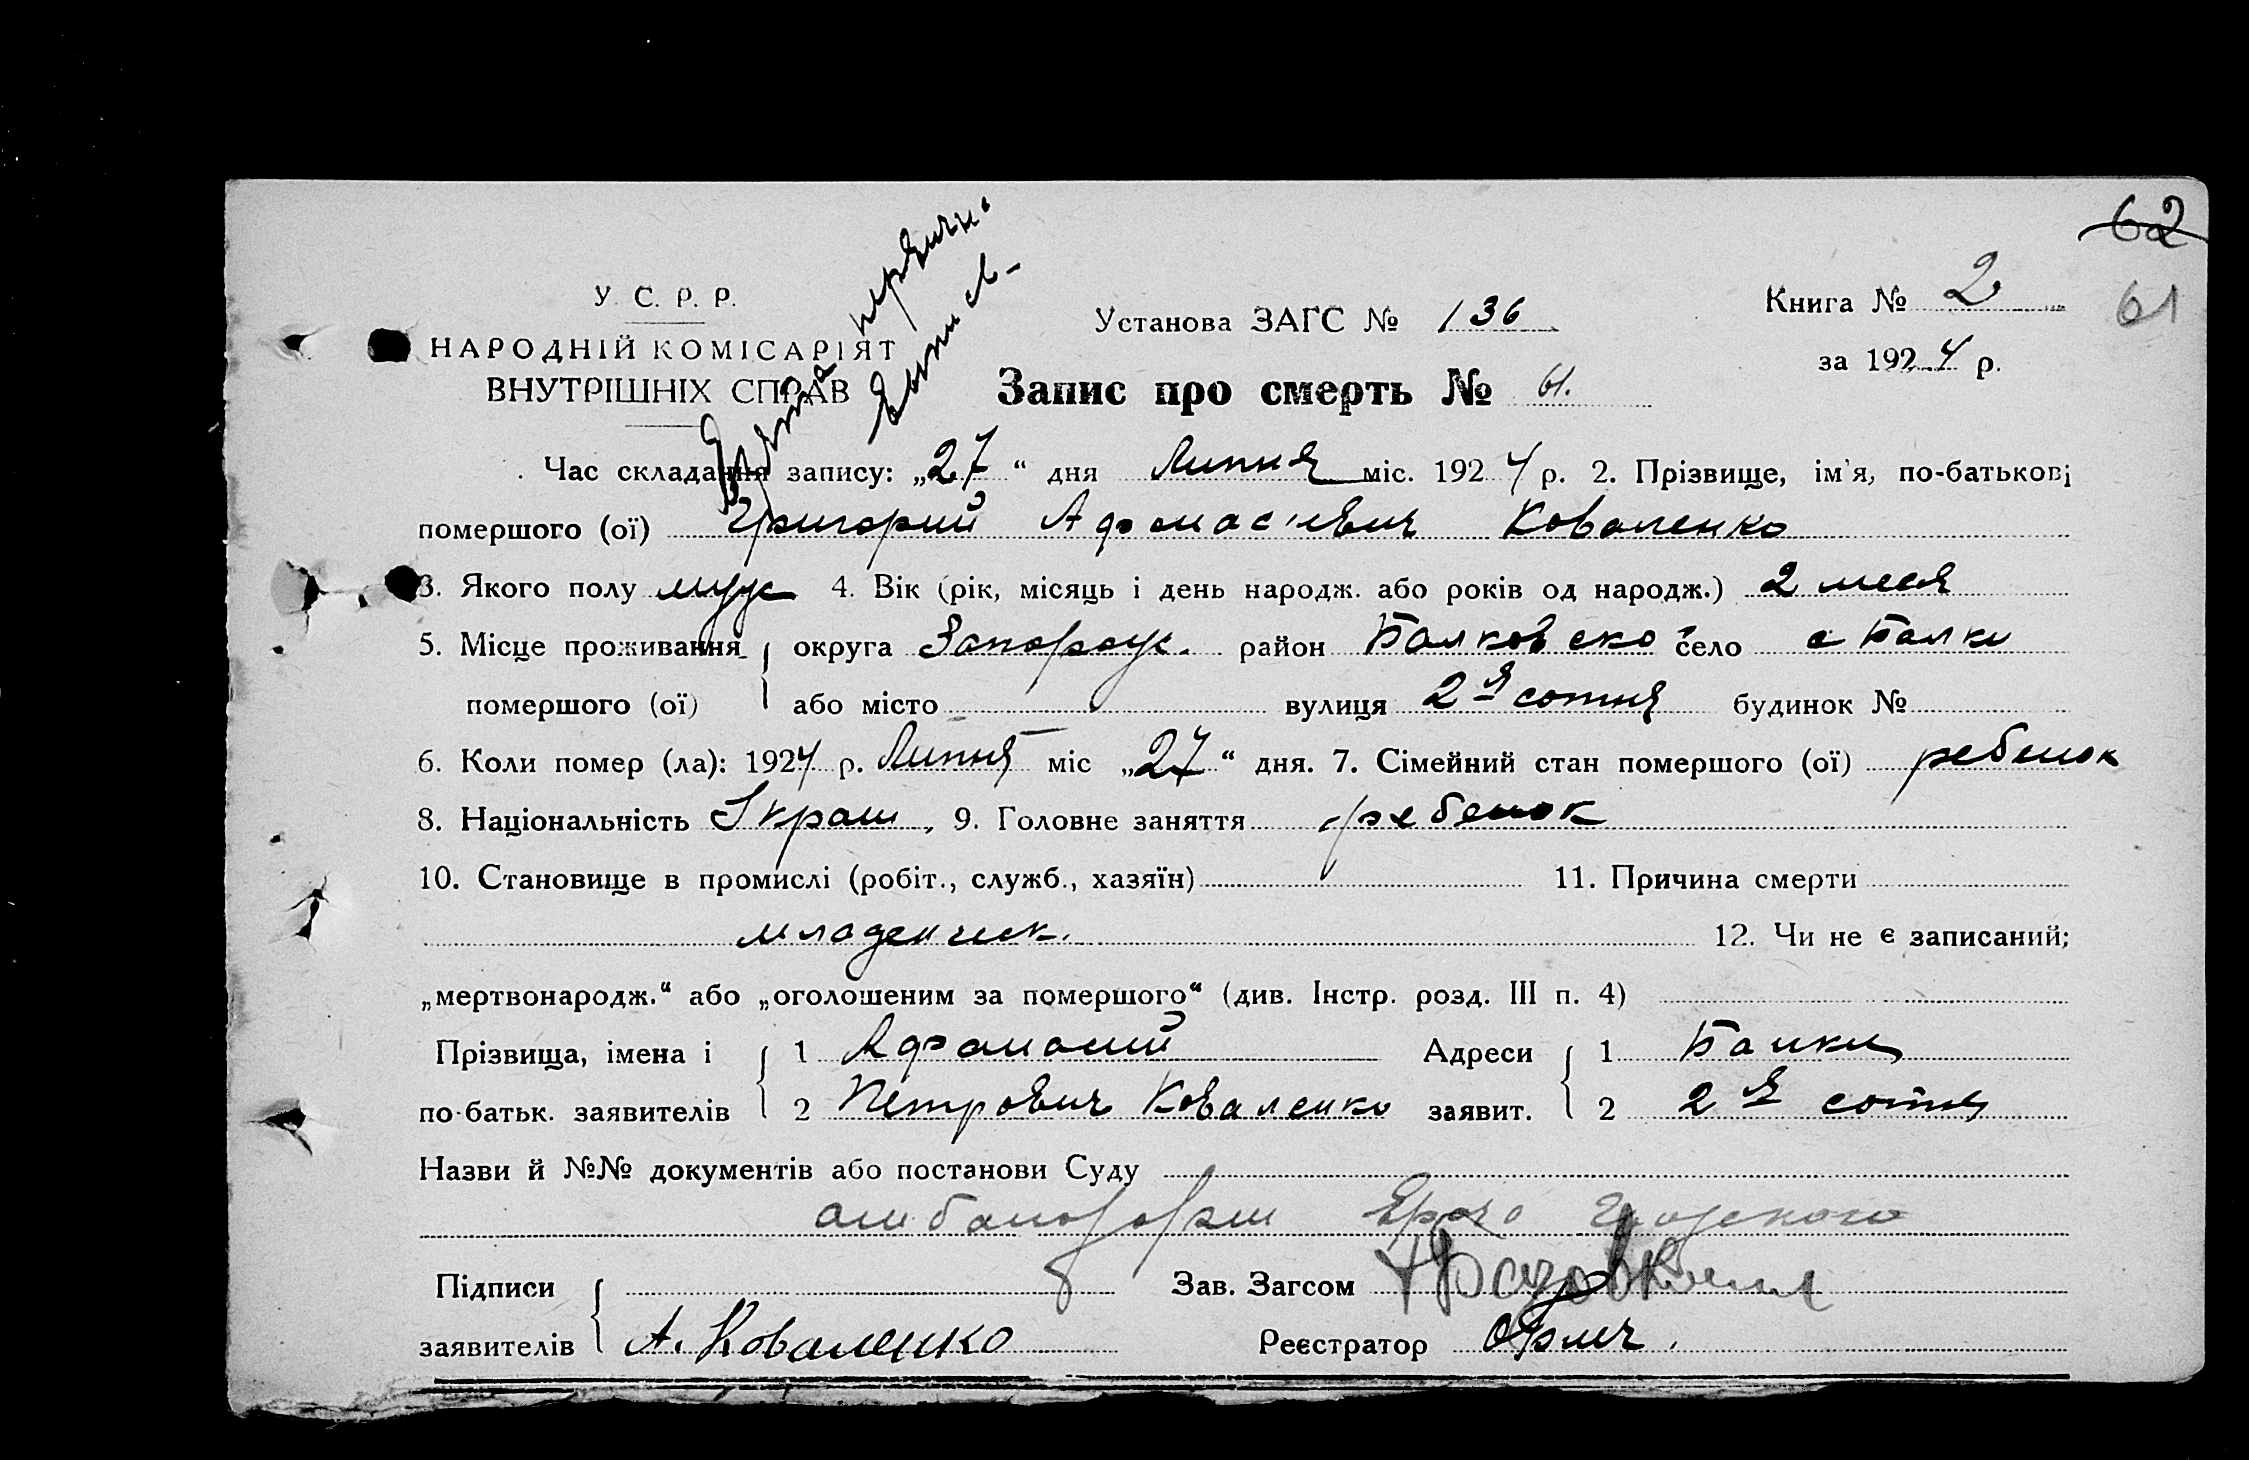 62
61
У. С. Р. Р.
НАРОДНІЙ КОМІСАРІЯТ
ВНУТРІШНІХ СПРАВ
Установа ЗАГС № 136
Книга № 2
за 1924 р.
Запис про смерть № 61.
Час складання запису: „27“ дня Липня міс. 1924 р. 2. Прізвище, ім'я, по-батькові
помершого (ої) Григорий Афонасиевич Коваленко
3. Якого полу муж 4. Вік (рік, місяць і день народж. або років од народж.) 2 меся
5. Місце проживання округа Запорож. район Балковско село с Балки
помершого (ої) або місто вулиця 2я сотня будинок №
6. Коли помер (ла): 1924 р. Липня міс „27“ дня. 7. Сімейний стан помершого (ої) ребенок
8. Національність Украин, 9. Головне заняття ребенок
10. Становище в промислі (робіт., служб., хазяїн) 11. Причина смерти
младенческ. 12. Чи не є записаний;
„мертвонародж.“ або „оголошеним за помершого“ (див. Інстр. розд. III п. 4)
Прізвища, імена і 1 Афанасий Адреси 1 Балки
по-батьк. заявителів 2 Петрович Коваленко заявит. 2 2я сотня
Назви й №№ документів або постанови Суду
Підписи Зав. Загсом
заявителів А. Коваленко Реєстратор